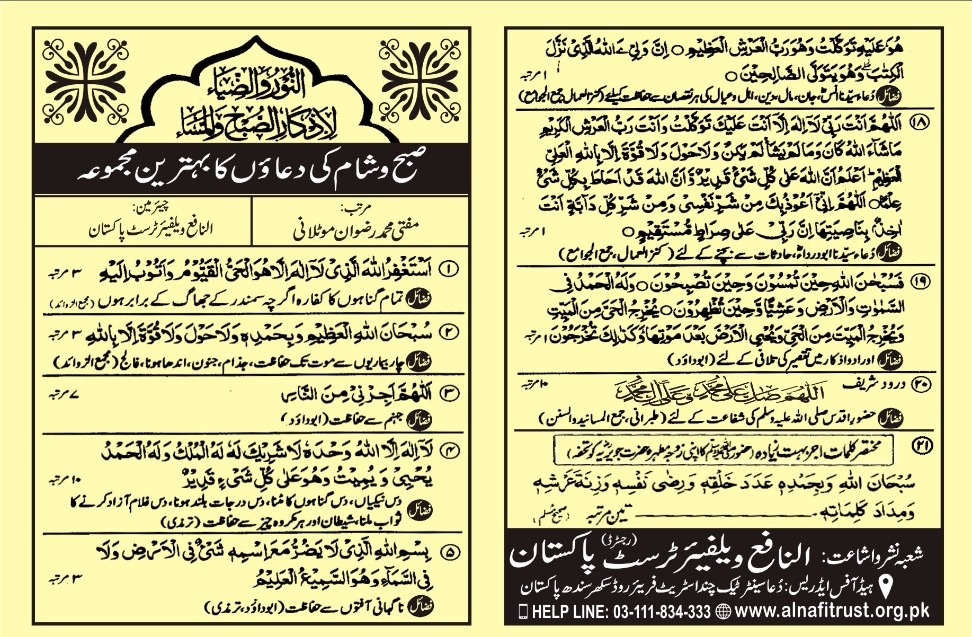 النُّورُ وَالضِّيَاء
لِاَذْكَارِ الصَّبَاحِ وَالْمَسَاء
صبح و شام کی دعاؤں کا بہترین مجموعہ
مرتب:
مفتی محمد رضوان موٹلانی
چیئرمین:
النافع ویلفیئر ٹرسٹ پاکستان
۱ اَسْتَغْفِرُ اللهَ الَّذِیْ لَآ اِلٰهَ اِلَّا هُوَ الْحَیُّ الْقَیُّوْمُ وَاَتُوْبُ اِلَیْهِ ۳ مرتبہ
فضائل تمام گناہوں کا کفارہ اگرچہ سمندر کے جھاگ کے برابر ہوں (مجمع الزوائد)
۲ سُبْحَانَ اللهِ الْعَظِیْمِ وَبِحَمْدِهٖ وَلَا حَوْلَ وَلَا قُوَّةَ اِلَّا بِاللهِ ۳ مرتبہ
فضائل چار بیماریوں سے موت تک حفاظت، جذام، جنون، اندھا ہونا، فالج (مجمع الزوائد)
۳ اَللّٰهُمَّ اَجِرْنِیْ مِنَ النَّارِ ۷ مرتبہ
فضائل جہنم سے حفاظت (ابوداؤد)
۴ لَآ اِلٰهَ اِلَّا اللهُ وَحْدَهٗ لَا شَرِیْكَ لَهٗ لَهُ الْمُلْكُ وَلَهُ الْحَمْدُ
یُحْیِیْ وَ یُمِیْتُ وَهُوَ عَلٰی کُلِّ شَیْءٍ قَدِیْرٌ ۱۰ مرتبہ
فضائل دس نیکیاں، دس گناہوں کا مٹنا، دس درجات بلند ہونا، دس غلام آزاد کرنے کا
ثواب ملنا، شیطان اور ہر مکروہ چیز سے حفاظت (ترمذی)
۵ بِسْمِ اللهِ الَّذِیْ لَا یَضُرُّ مَعَ اسْمِهٖ شَیْءٌ فِی الْاَرْضِ وَلَا
فِی السَّمَآءِ وَهُوَ السَّمِیْعُ الْعَلِیْمُ ۳ مرتبہ
فضائل ناگہانی آفتوں سے حفاظت (ابوداؤد، ترمذی)
هُوَ عَلَیْهِ تَوَکَّلْتُ وَهُوَ رَبُّ الْعَرْشِ الْعَظِیْمِ ○ اِنَّ وَلِیِّ ےَ اللهُ الَّذِیْ نَزَّلَ
الْکِتٰبَ وَهُوَ یَتَوَلَّی الصَّالِحِیْنَ ○ ۱ مرتبہ
فضائل دُعاء سیّدنا انسؓ، جان، مال، دین، اہل و عیال کی ہر نقصان سے حفاظت کیلئے (کنزالعمال جمع الجوامع)
۱۸ اَللّٰهُمَّ اَنْتَ رَبِّیْ لَآ اِلٰهَ اِلَّا اَنْتَ عَلَیْكَ تَوَکَّلْتُ وَاَنْتَ رَبُّ الْعَرْشِ الْکَرِیْمِ
مَاشَآءَ اللهُ کَانَ وَمَا لَمْ یَشَأْ لَمْ یَکُنْ وَلَا حَوْلَ وَلَا قُوَّةَ اِلَّا بِاللهِ الْعَلِیِّ
الْعَظِیْمِ اَعْلَمُ اَنَّ اللهَ عَلٰی کُلِّ شَیْءٍ قَدِیْرٌ وَّ اَنَّ اللهَ قَدْ اَحَاطَ بِکُلِّ شَیْءٍ
عِلْمًا○ اَللّٰهُمَّ اِنِّیْٓ اَعُوْذُبِكَ مِنْ شَرِّ نَفْسِیْ وَمِنْ شَرِّ کُلِّ دَآبَّةٍ اَنْتَ
اٰخِذٌ بِنَاصِیَتِهَا اِنَّ رَبِّیْ عَلٰی صِرَاطٍ مُّسْتَقِیْمٍ○ ۱ مرتبہ
فضائل دُعاء سیّدنا ابودرداءؓ، حادثات سے بچنے کے لئے (کنزالعمال، جمع الجوامع)
۱۹ فَسُبْحٰنَ اللهِ حِیْنَ تُمْسُوْنَ وَحِیْنَ تُصْبِحُوْنَ○ وَلَهُ الْحَمْدُ فِی
السَّمٰوٰتِ وَالْاَرْضِ وَعَشِیًّا وَّحِیْنَ تُظْهِرُوْنَ○ یُخْرِجُ الْحَیَّ مِنَ الْمَیِّتِ
وَیُخْرِجُ الْمَیِّتَ مِنَ الْحَیِّ وَیُحْیِ الْاَرْضَ بَعْدَ مَوْتِهَا وَکَذٰلِكَ تُخْرَجُوْنَ ۱ مرتبہ
فضائل اوراد و اذکار میں تقصیر کی تلافی کے لئے (ابوداؤد)
۲۰ درود شریف اَللّٰهُمَّ صَلِّ عَلٰی مُحَمَّدٍ وَّعَلٰی اٰلِ مُحَمَّدٍ ۱۰ مرتبہ
فضائل حضور اقدس صلی اللہ علیہ وسلم کی شفاعت کے لئے (طبرانی، جمع المسانید والسنن)
۲۱ مختصر کلمات اجر بہت زیادہ (حضور ﷺ کا اپنی زوجہ مطہرہ حضرت جویریہؓ کو تحفہ)
سُبْحَانَ اللهِ وَبِحَمْدِهٖ عَدَدَ خَلْقِهٖ وَرِضٰی نَفْسِهٖ وَزِنَةَ عَرْشِهٖ
وَمِدَادَ کَلِمَاتِهٖ. تین مرتبہ (صحیح مسلم)
شعبہ نشر و اشاعت: النافع ویلفیئر ٹرسٹ (رجسٹرڈ) پاکستان
ہیڈ آفس ایڈریس: دُعا سینٹر ٹیک چند اسٹریٹ فریئر روڈ سکھر سندھ پاکستان
HELP LINE: 03-111-834-333 www.alnafitrust.org.pk